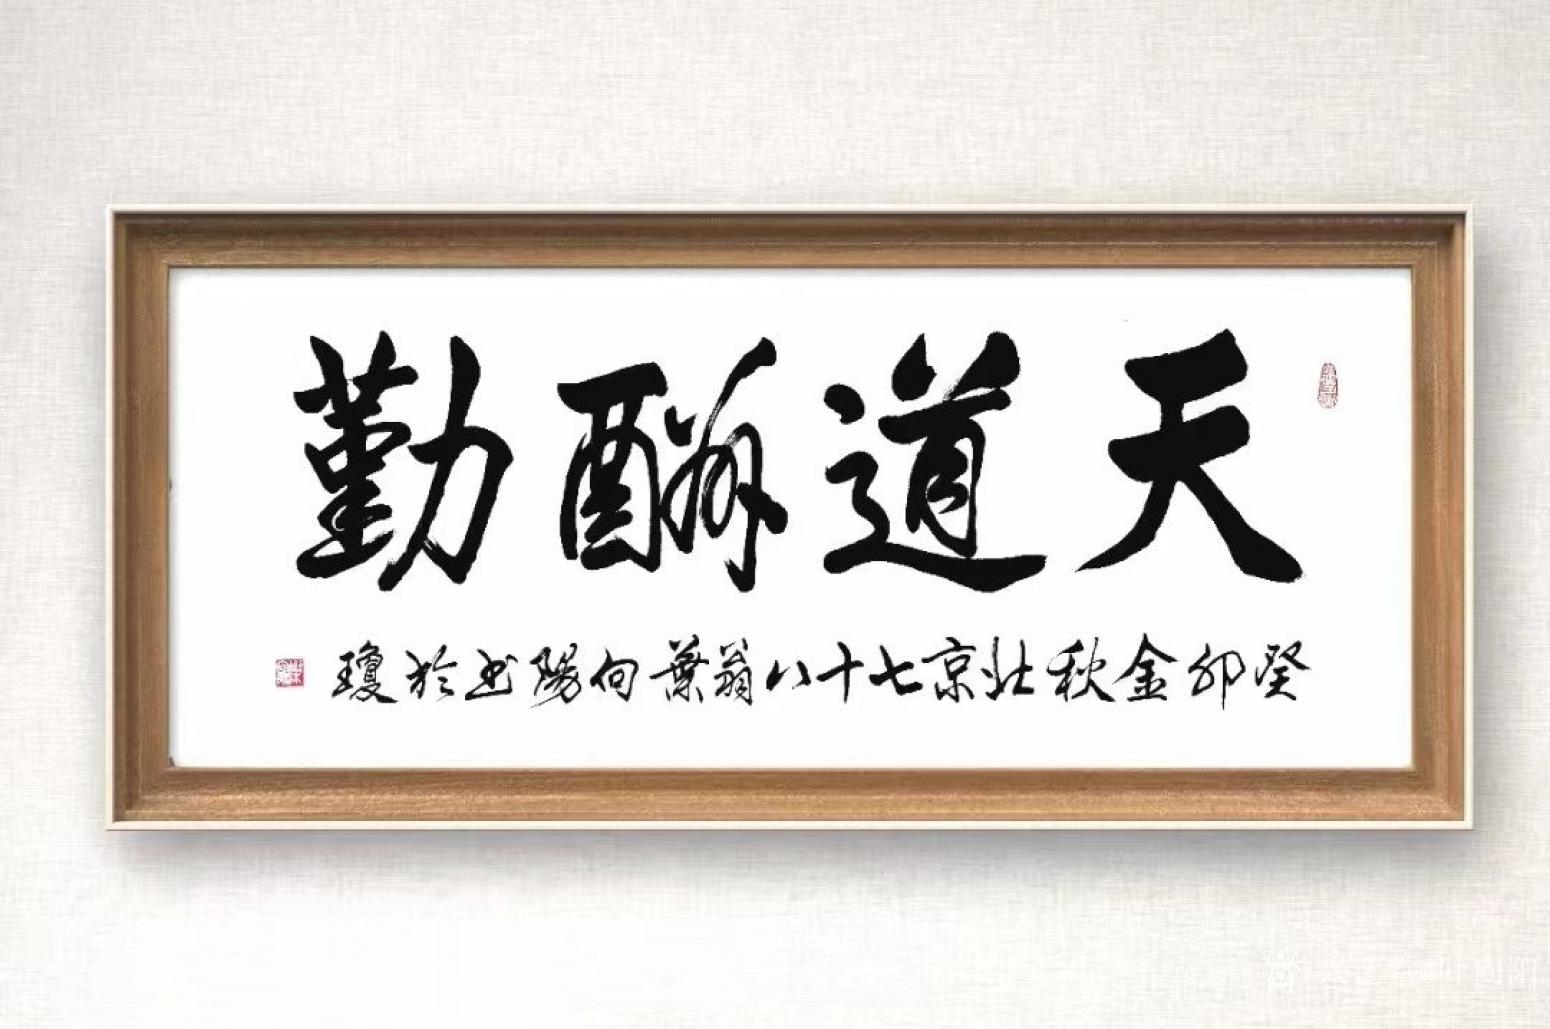 天道酬勤
癸卯金秋北京七十八翁葉向陽书於瓊